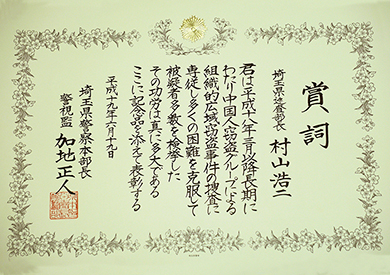 賞詞
埼玉県巡査部長
村山浩二
君は平成十八年二月以降長期に
わたり中国人窃盗グループによる
組織的広域窃盗事件の捜査に
専従し多くの困難を克服して
被疑者多数を検挙した
その功労は真に多大である
ここに記念品を添えて表彰する
平成十九年六月十九日
埼玉県警察本部長
警視監 加地正人